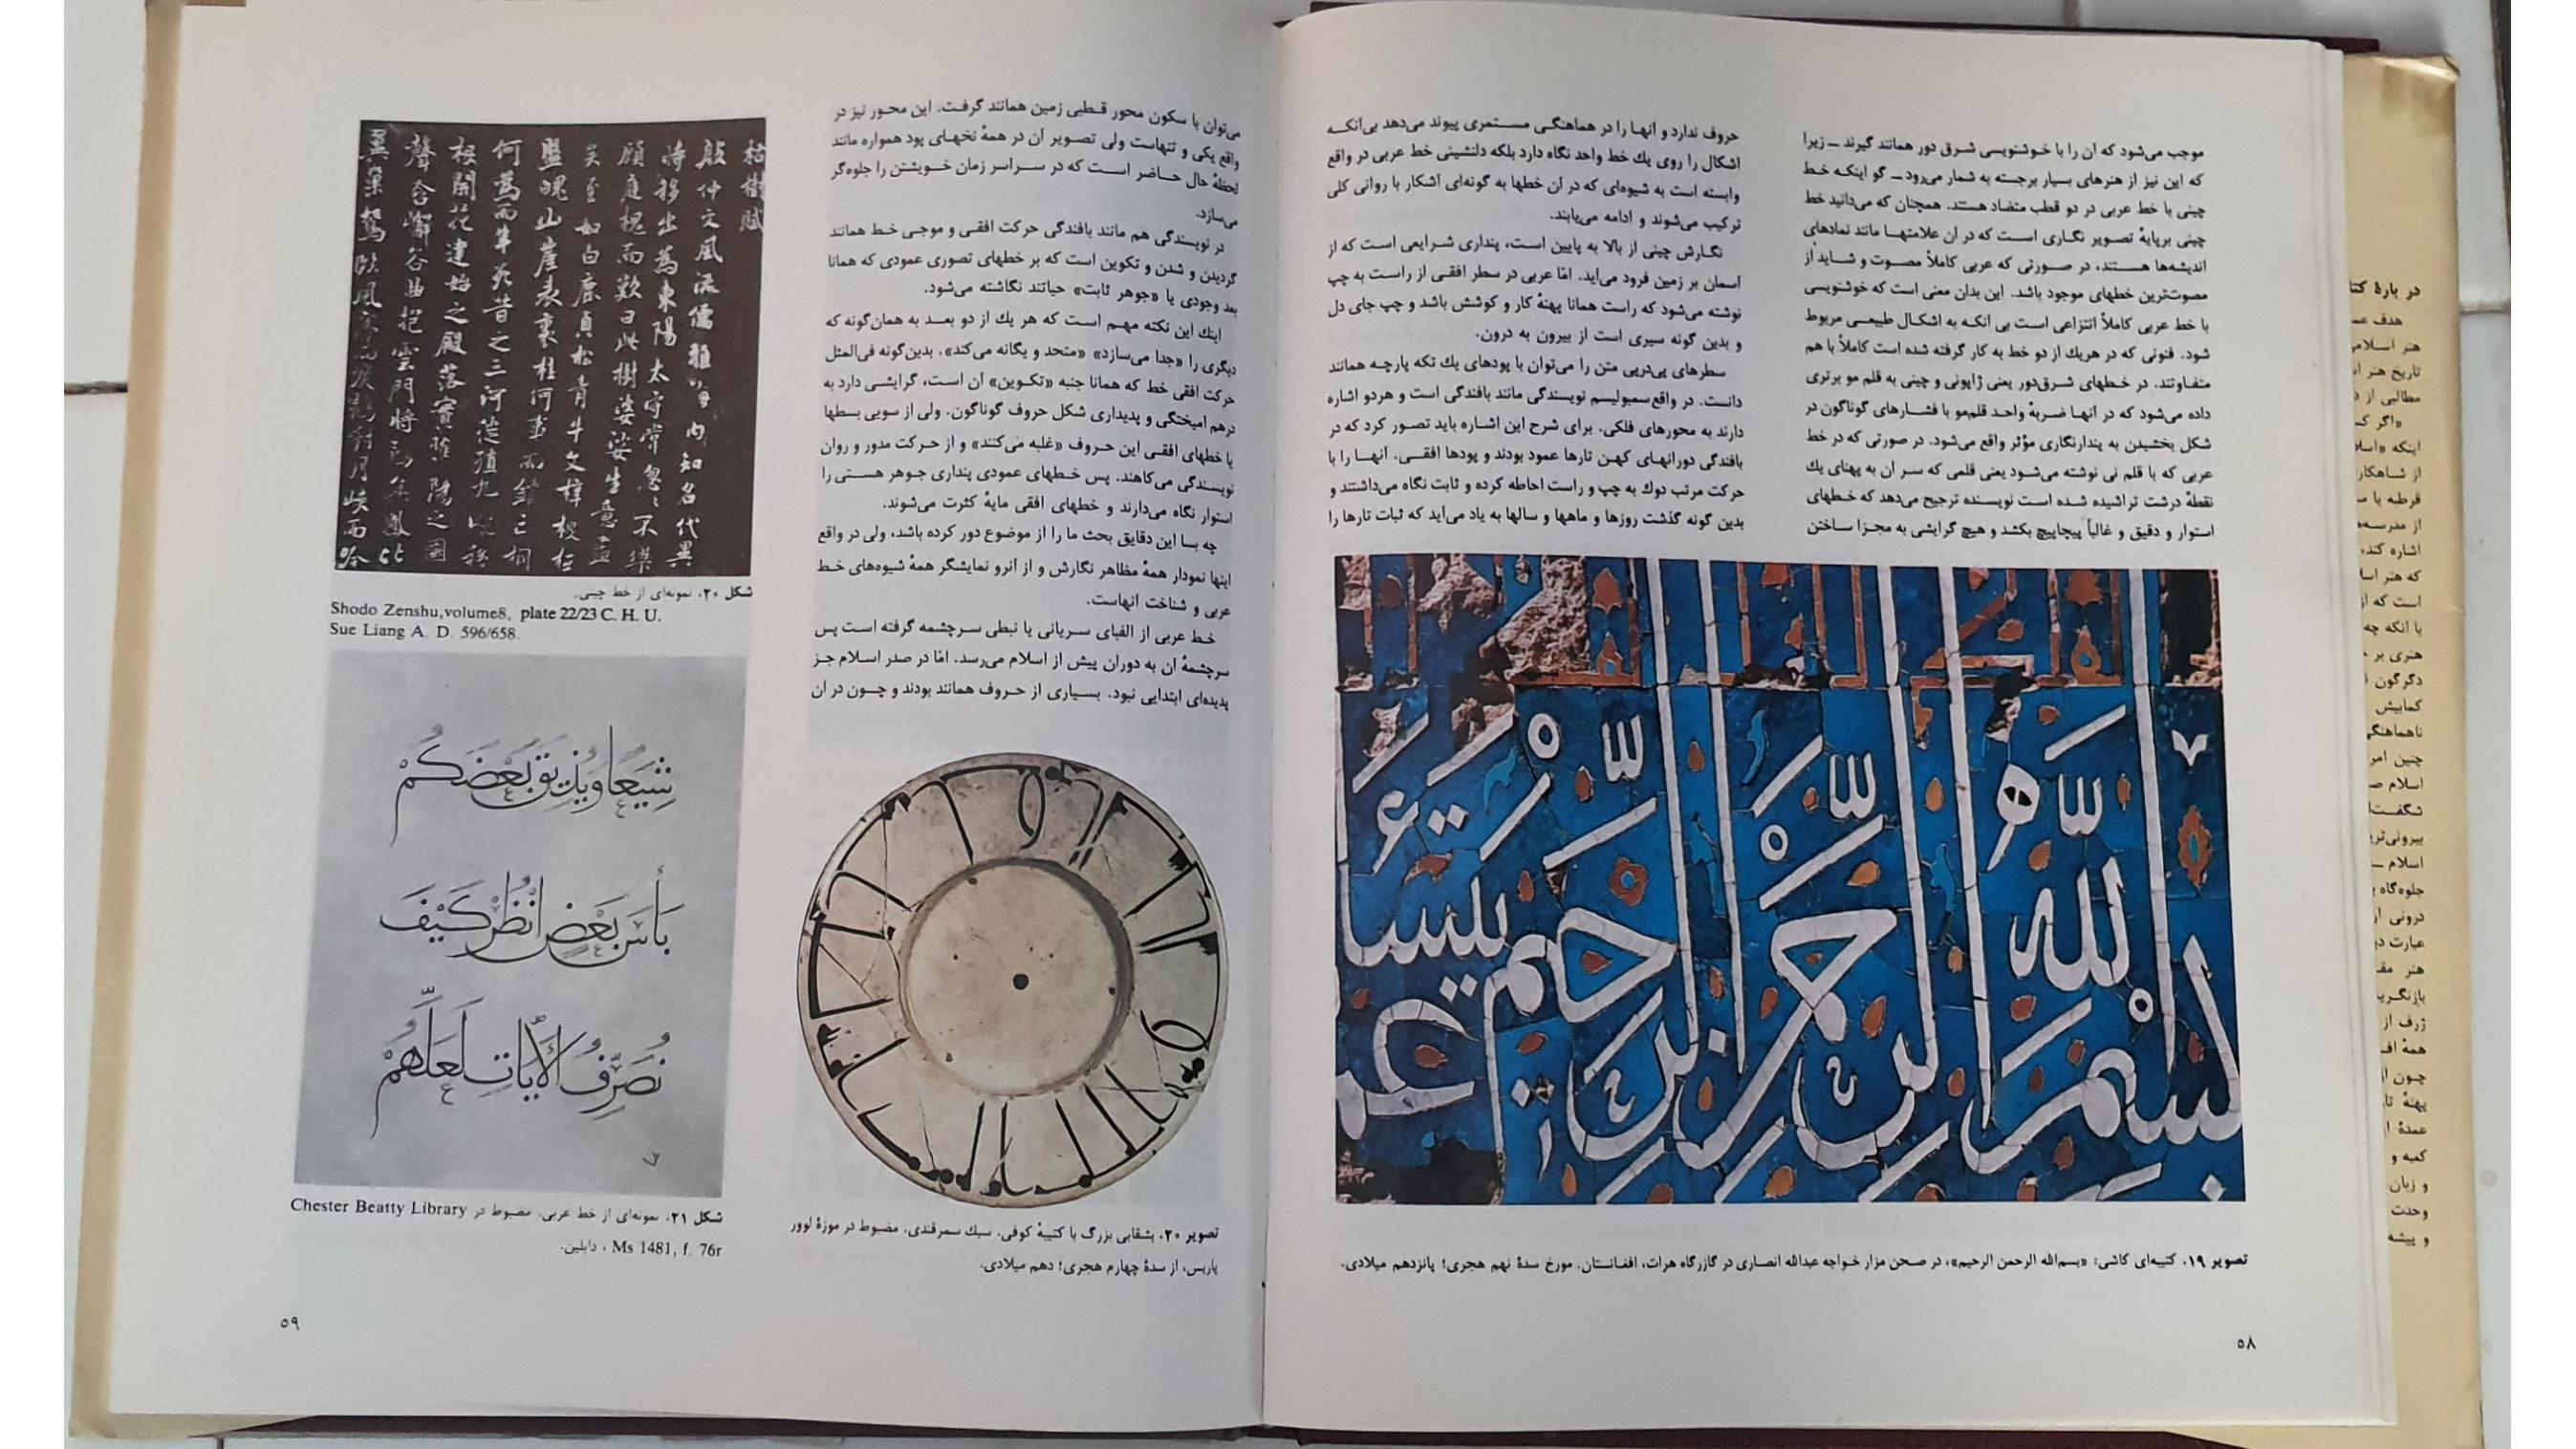 موجب می‌شود که آن را با خوشنویسی شرق دور همانند گیرند ــ زیرا
که این نیز از هنرهای بسیار برجسته به شمار می‌رود ــ گو اینکه خط
چینی با خط عربی در دو قطب متضاد هستند. همچنان که می‌دانید خط
چینی برپایهٔ تصویر نگاری است که در آن علامتها مانند نمادهای
اندیشه‌ها هستند، در صورتی که عربی کاملاً مصوت و شاید از
مصوت‌ترین خطهای موجود باشد. این بدان معنی است که خوشنویسی
با خط عربی کاملاً انتزاعی است بی آنکه به اشکال طبیعی مربوط
شود. فنونی که در هریك از دو خط به کار گرفته شده است کاملاً با هم
متفاوتند. در خطهای شرق‌دور یعنی ژاپونی و چینی به قلم مو برتری
داده می‌شود که در آنها ضربهٔ واحد قلم‌مو با فشارهای گوناگون در
شکل بخشیدن به پندارنگاری مؤثر واقع می‌شود. در صورتی که در خط
عربی که با قلم نی نوشته می‌شود یعنی قلمی که سر آن به پهنای یك
نقطهٔ درشت تراشیده شده است نویسنده ترجیح می‌دهد که خطهای
استوار و دقیق و غالباً پیچاپیچ بکشد و هیچ گرایشی به مجزا ساختن
حروف ندارد و آنها را در هماهنگی مستمری پیوند می‌دهد بی‌آنکه
اشکال را روی یك خط واحد نگاه دارد بلکه دلنشینی خط عربی در واقع
وابسته است به شیوه‌ای که در آن خطها به گونه‌ای آشکار با روانی کلی
ترکیب می‌شوند و ادامه می‌یابند.
نگارش چینی از بالا به پایین است، پنداری شرایعی است که از
آسمان بر زمین فرود می‌آید. امّا عربی در سطر افقی از راست به چپ
نوشته می‌شود که راست همانا پهنهٔ کار و کوشش باشد و چپ جای دل
و بدین گونه سیری است از بیرون به درون.
سطرهای پی‌درپی متن را می‌توان با پودهای یك تکه پارچه همانند
دانست. در واقع سمبولیسم نویسندگی مانند بافندگی است و هردو اشاره
دارند به محورهای فلکی. برای شرح این اشاره باید تصور کرد که در
بافندگی دورانهای کهن تارها عمود بودند و پودها افقی. آنها را با
حرکت مرتب دوك به چپ و راست احاطه کرده و ثابت نگاه می‌داشتند و
بدین گونه گذشت روزها و ماهها و سالها به یاد می‌آید که ثبات تارها را
بسم الله الرحمن الرحیم
تصویر ۱۹. کتیبه‌ای کاشی: «بسم‌الله الرحمن الرحیم»، در صحن مزار خواجه عبدالله انصاری در گازرگاه هرات، افغانستان. مورخ سدهٔ نهم هجری؛ پانزدهم میلادی.
۵۸
می‌توان با سکون محور قطبی زمین همانند گرفت. این محور نیز در
واقع یکی و تنهاست ولی تصویر آن در همهٔ نخهای پود همواره مانند
لحظهٔ حال حاضر است که در سراسر زمان خویشتن را جلوه‌گر
می‌سازد.
در نویسندگی هم مانند بافندگی حرکت افقی و موجی خط همانند
گردیدن و شدن و تکوین است که بر خطهای تصوری عمودی که همانا
بعد وجودی یا «جوهر ثابت» حیاتند نگاشته می‌شود.
اینك این نکته مهم است که هر یك از دو بعد به همان‌گونه که
دیگری را «جدا می‌سازد» «متحد و یگانه می‌کند». بدین‌گونه فی‌المثل
حرکت افقی خط که همانا جنبه «تکوین» آن است، گرایشی دارد به
درهم آمیختگی و پدیداری شکل حروف گوناگون. ولی از سویی بسطها
یا خطهای افقی این حروف «غلبه می‌کنند» و از حرکت مدور و روان
نویسندگی می‌کاهند. پس خطهای عمودی پنداری جوهر هستی را
استوار نگاه می‌دارند و خطهای افقی مایهٔ کثرت می‌شوند.
چه بسا این دقایق بحث ما را از موضوع دور کرده باشد، ولی در واقع
اینها نمودار همهٔ مظاهر نگارش و از آنرو نمایشگر همهٔ شیوه‌های خط
عربی و شناخت آنهاست.
خط عربی از الفبای سریانی یا نبطی سرچشمه گرفته است پس
سرچشمهٔ آن به دوران پیش از اسلام می‌رسد. امّا در صدر اسلام جز
پدیده‌ای ابتدایی نبود. بسیاری از حروف همانند بودند و چون در آن
تصویر ۲۰. بشقابی بزرگ با کتیبهٔ کوفی. سبك سمرقندی. مضبوط در موزهٔ لوور
پاریس، از سدهٔ چهارم هجری؛ دهم میلادی.
枯樹賦
殷仲文風流儒雅海内知名代異
時移出為東陽太守常忽忽不樂
顧庭槐而歎曰此樹婆娑生意盡
矣至如白鹿貞松青牛文梓根柢
盤魄山崖表裏桂何事而銷亡桐
何為而半死昔之三河徙殖九畹移
根開花建始之殿落實睢陽之園
聲含嶰谷曲抱雲門將雛集鳳比
翼巢鴛臨風亭而唳鶴對月峽而吟
شکل ۲۰. نمونه‌ای از خط چینی.
Shodo Zenshu,volume8, plate 22/23 C. H. U.
Sue Liang A. D. 596/658.
شِیَعًا وَیُذِیقَ بَعْضَکُمْ
بَأْسَ بَعْضٍ انْظُرْ کَیْفَ
نُصَرِّفُ الْآیَاتِ لَعَلَّهُمْ
شکل ۲۱. نمونه‌ای از خط عربی. مضبوط در Chester Beatty Library
Ms 1481, f. 76r ، دابلین.
۵۹
در بارهٔ کتا
هدف عمـ
هنر اسلامی
تاریخ هنر اسـ
مطالبی از د
«اگر کسـ
اینکه «اسلا
از شاهکار
قرطبه یا سـ
از مدرسه‌ها
اشاره کند،
که هنر اسلا
است که از
با آنکه چه
هنری بر
دگرگون
کمابیش
ناهماهنگی
چنین امر
اسلام
شگفت‌ا
بیرونی‌تر
اسلام ــ
جلوه‌گاه
درونی از
عبارت د
هنر مقـ
بازنگریـ
ژرف از
همهٔ افـ
چون ا
پهنهٔ تا
عمدهٔ ا
کعبه و
و زبان
وحدت
و پیشه